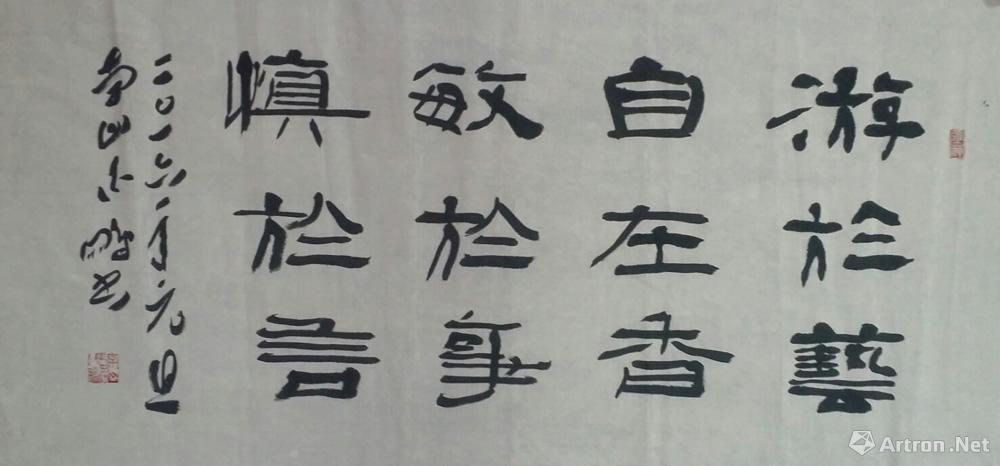 游於藝
自在香
敏於事
慎於言
二〇一六年元旦
南山
书
Artron.Net